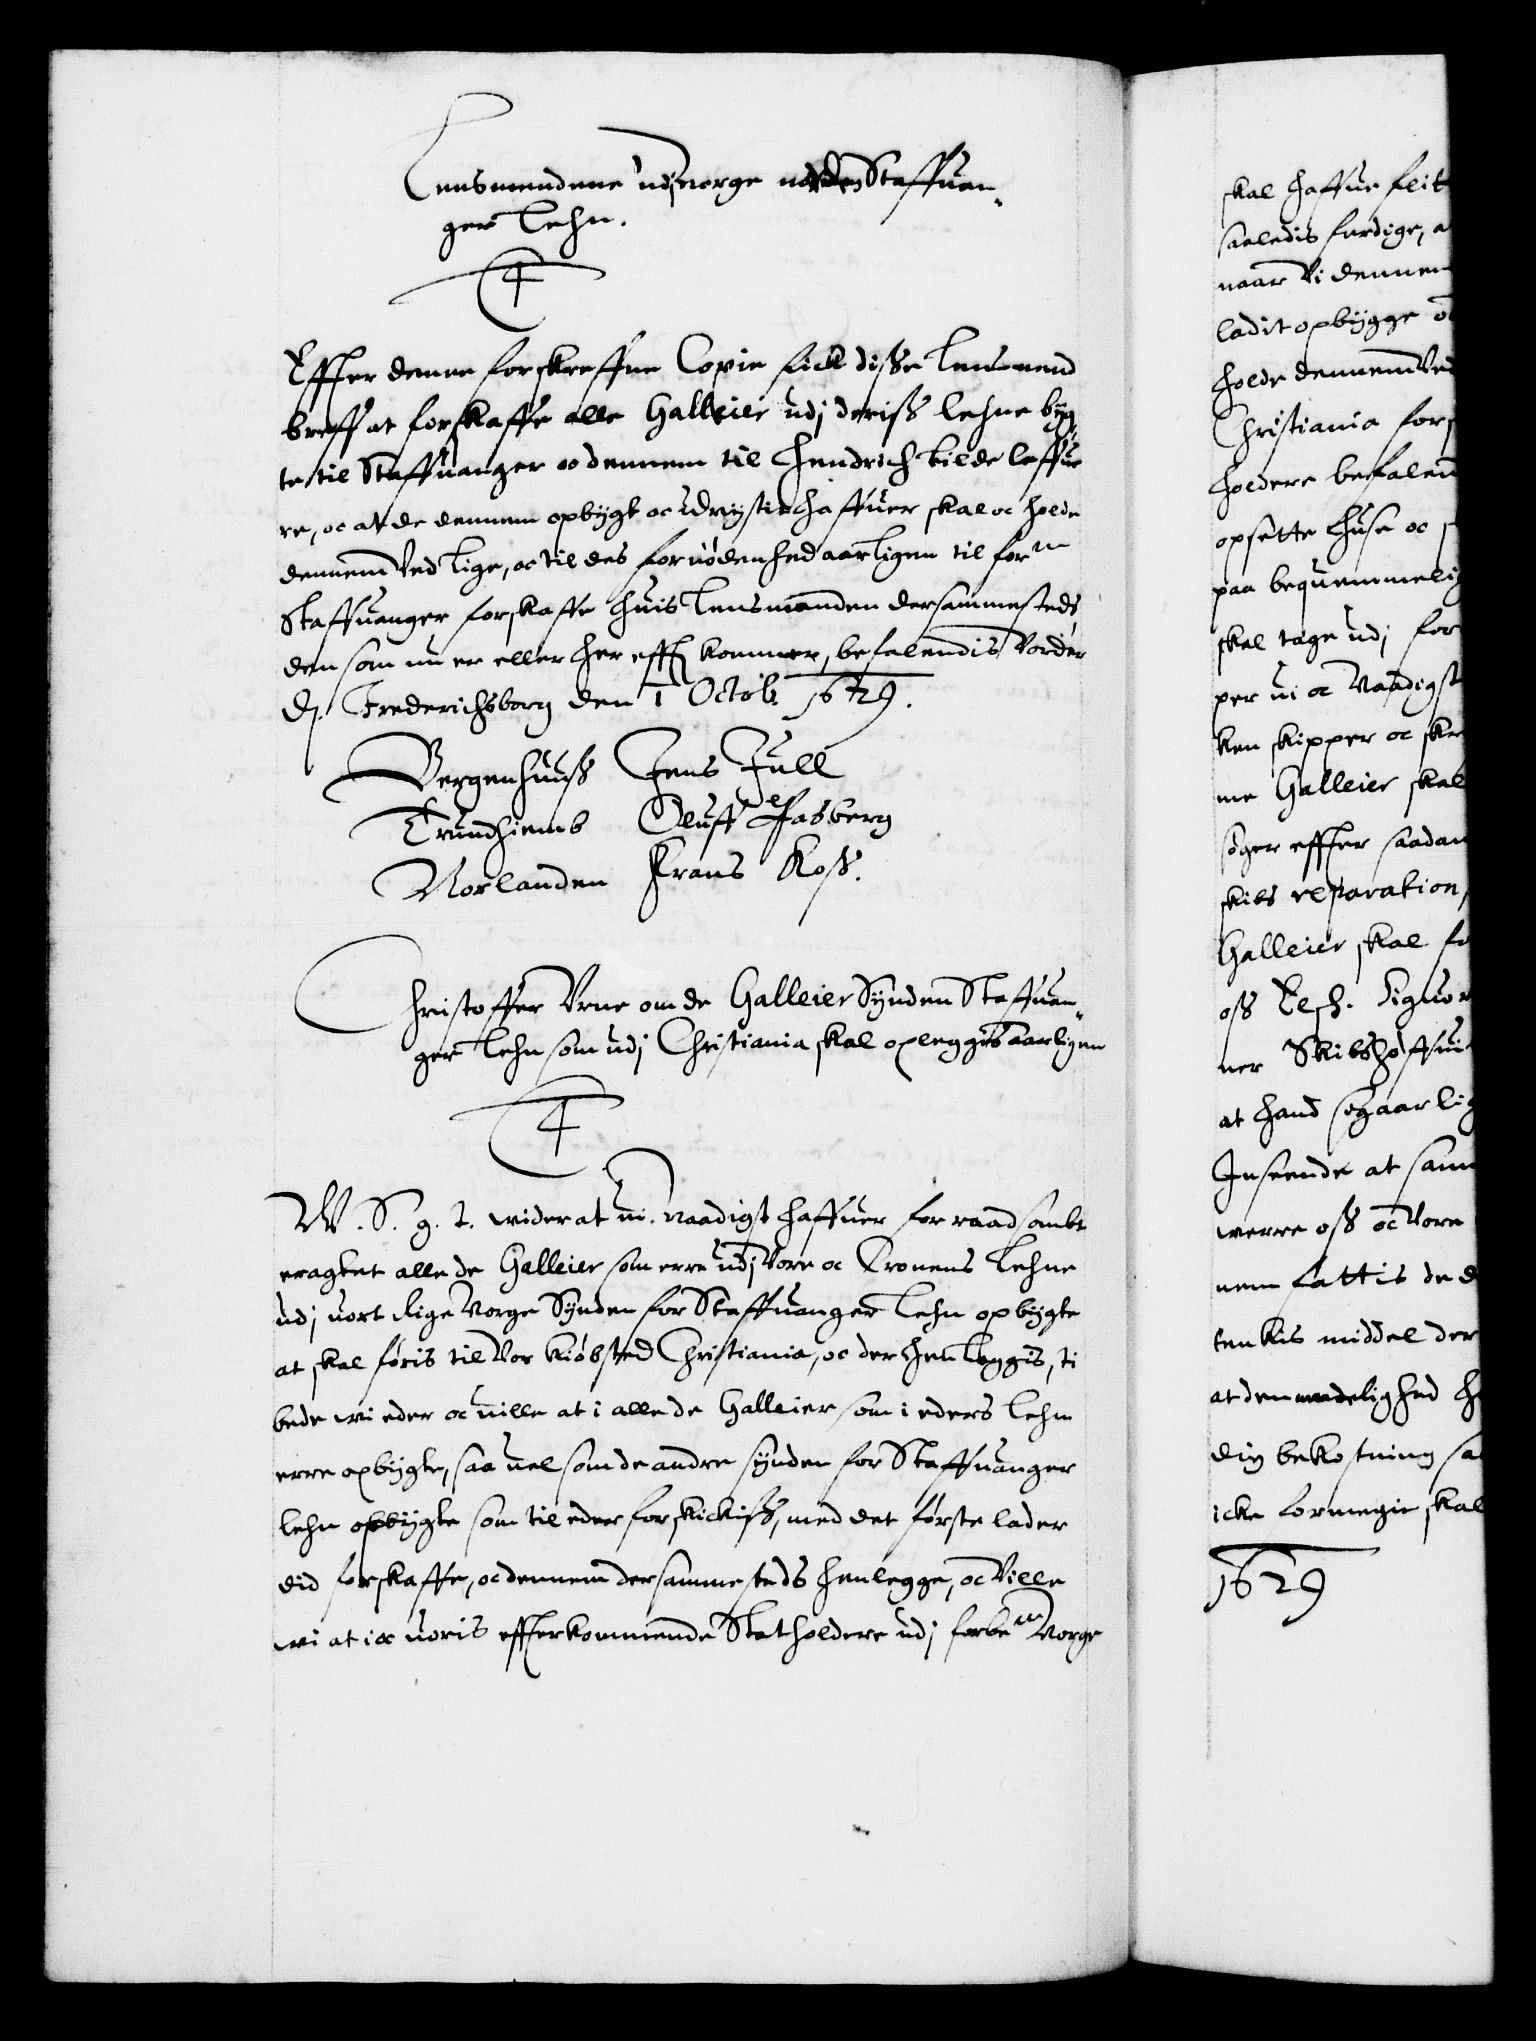 Lensmendene udj norge norden Staffuan-
ger Lehn.
Effter denne forskreffne Copie fick disse Lensmend
breff at forskaffe alle Galleier udj deriss lehne byg-
te til Staffuanger oc dennem til Hendrich bilde leffue
re, oc at de dennem opbygt oc udrijstit haffuer skal oc holde
dennem ved lige, oc til des fornödenhed aarligen til forne
Staffuanger forskaffe huis Lensmanden dersammesteds
den som nu er eller her efft kommer, befalendis vorder
dj. Frederichsborg den 1 Octob. 1629.
Bergenhuuss Jens Jull
Trundhiemb Oluff Pasberg
Norlanden Frans Koss.
Christoffer Urne om de Galleier Synden Staffuan-
ger Lehn som udj Christiania skal opleggis aarligen
W. S. g. t. wider at wi naadigst haffuer for raadsambt
eragtet alle de Galleier som erre udj vore oc Cronens Lehne
udj uort Rige Norge Synden for Staffuanger Lehn opbygte
at skal föris til vor kiöbsted Christiania, oc der hen leggis, ti
bede wi eder oc uille at i alle de Galleier som i eders lehn
erre opbygte, saa uel som de andre synden for Staffuanger
lehn opbygte som til eder forskickiss, med det förste lader
did forskaffe, oc dennem dersammesteds henlegge, oc ville
wi at i oc uoris effterkommende Statholdere udj forbene Norge
skal haffue flit
saaledis ferdige, a
naar Vi dennem
ladit opbygge o
holde dennem ved
Christiania fors
holdere befalen
opsette huse oc
paa bequemmelig
skal tage udj for
per ui oc Naadigst
ken skipper oc
me Galleier skal
söger effter saadan
skibs reparation,
Galleier skal fo
oss Elsk.
ner Skibshöffui
at hand og aarlig
Inseende at sam
werre oss oc vore
nem fattis de
tenkis middel der
at den
dig bekostning sa
icke formegit skal
1629